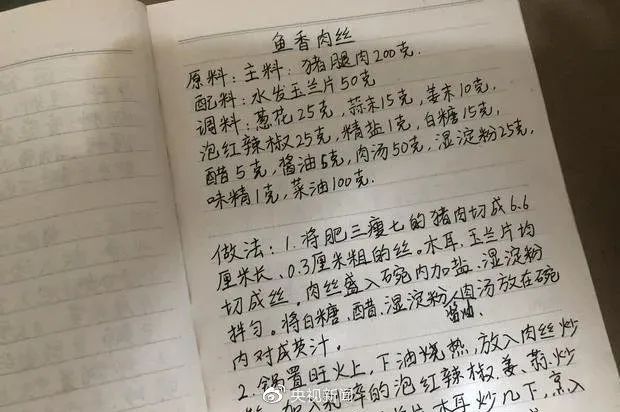 鱼香肉丝
原料:主料:猪腿肉200克.
配料:水发玉兰片50克
调料:葱花25克,蒜末15克,姜末10克,
泡红辣椒25克,精盐1克,白糖15克,
醋5克,酱油5克,肉汤50克,湿淀粉25克,
味精1克,菜油100克.
做法:1.将肥三瘦七的猪肉切成6.6
厘米长、0.3厘米粗的丝。木耳、玉兰片均
切成丝。肉丝盛入碗内加盐、湿淀粉
拌匀。将白糖、醋、湿淀粉、酱油、肉汤放在碗
内对成芡汁.
2.锅置旺火上,下油烧热,放入肉丝炒
加入 碎的泡红辣椒、姜、蒜炒
片、木耳炒几下,烹入
央视新闻